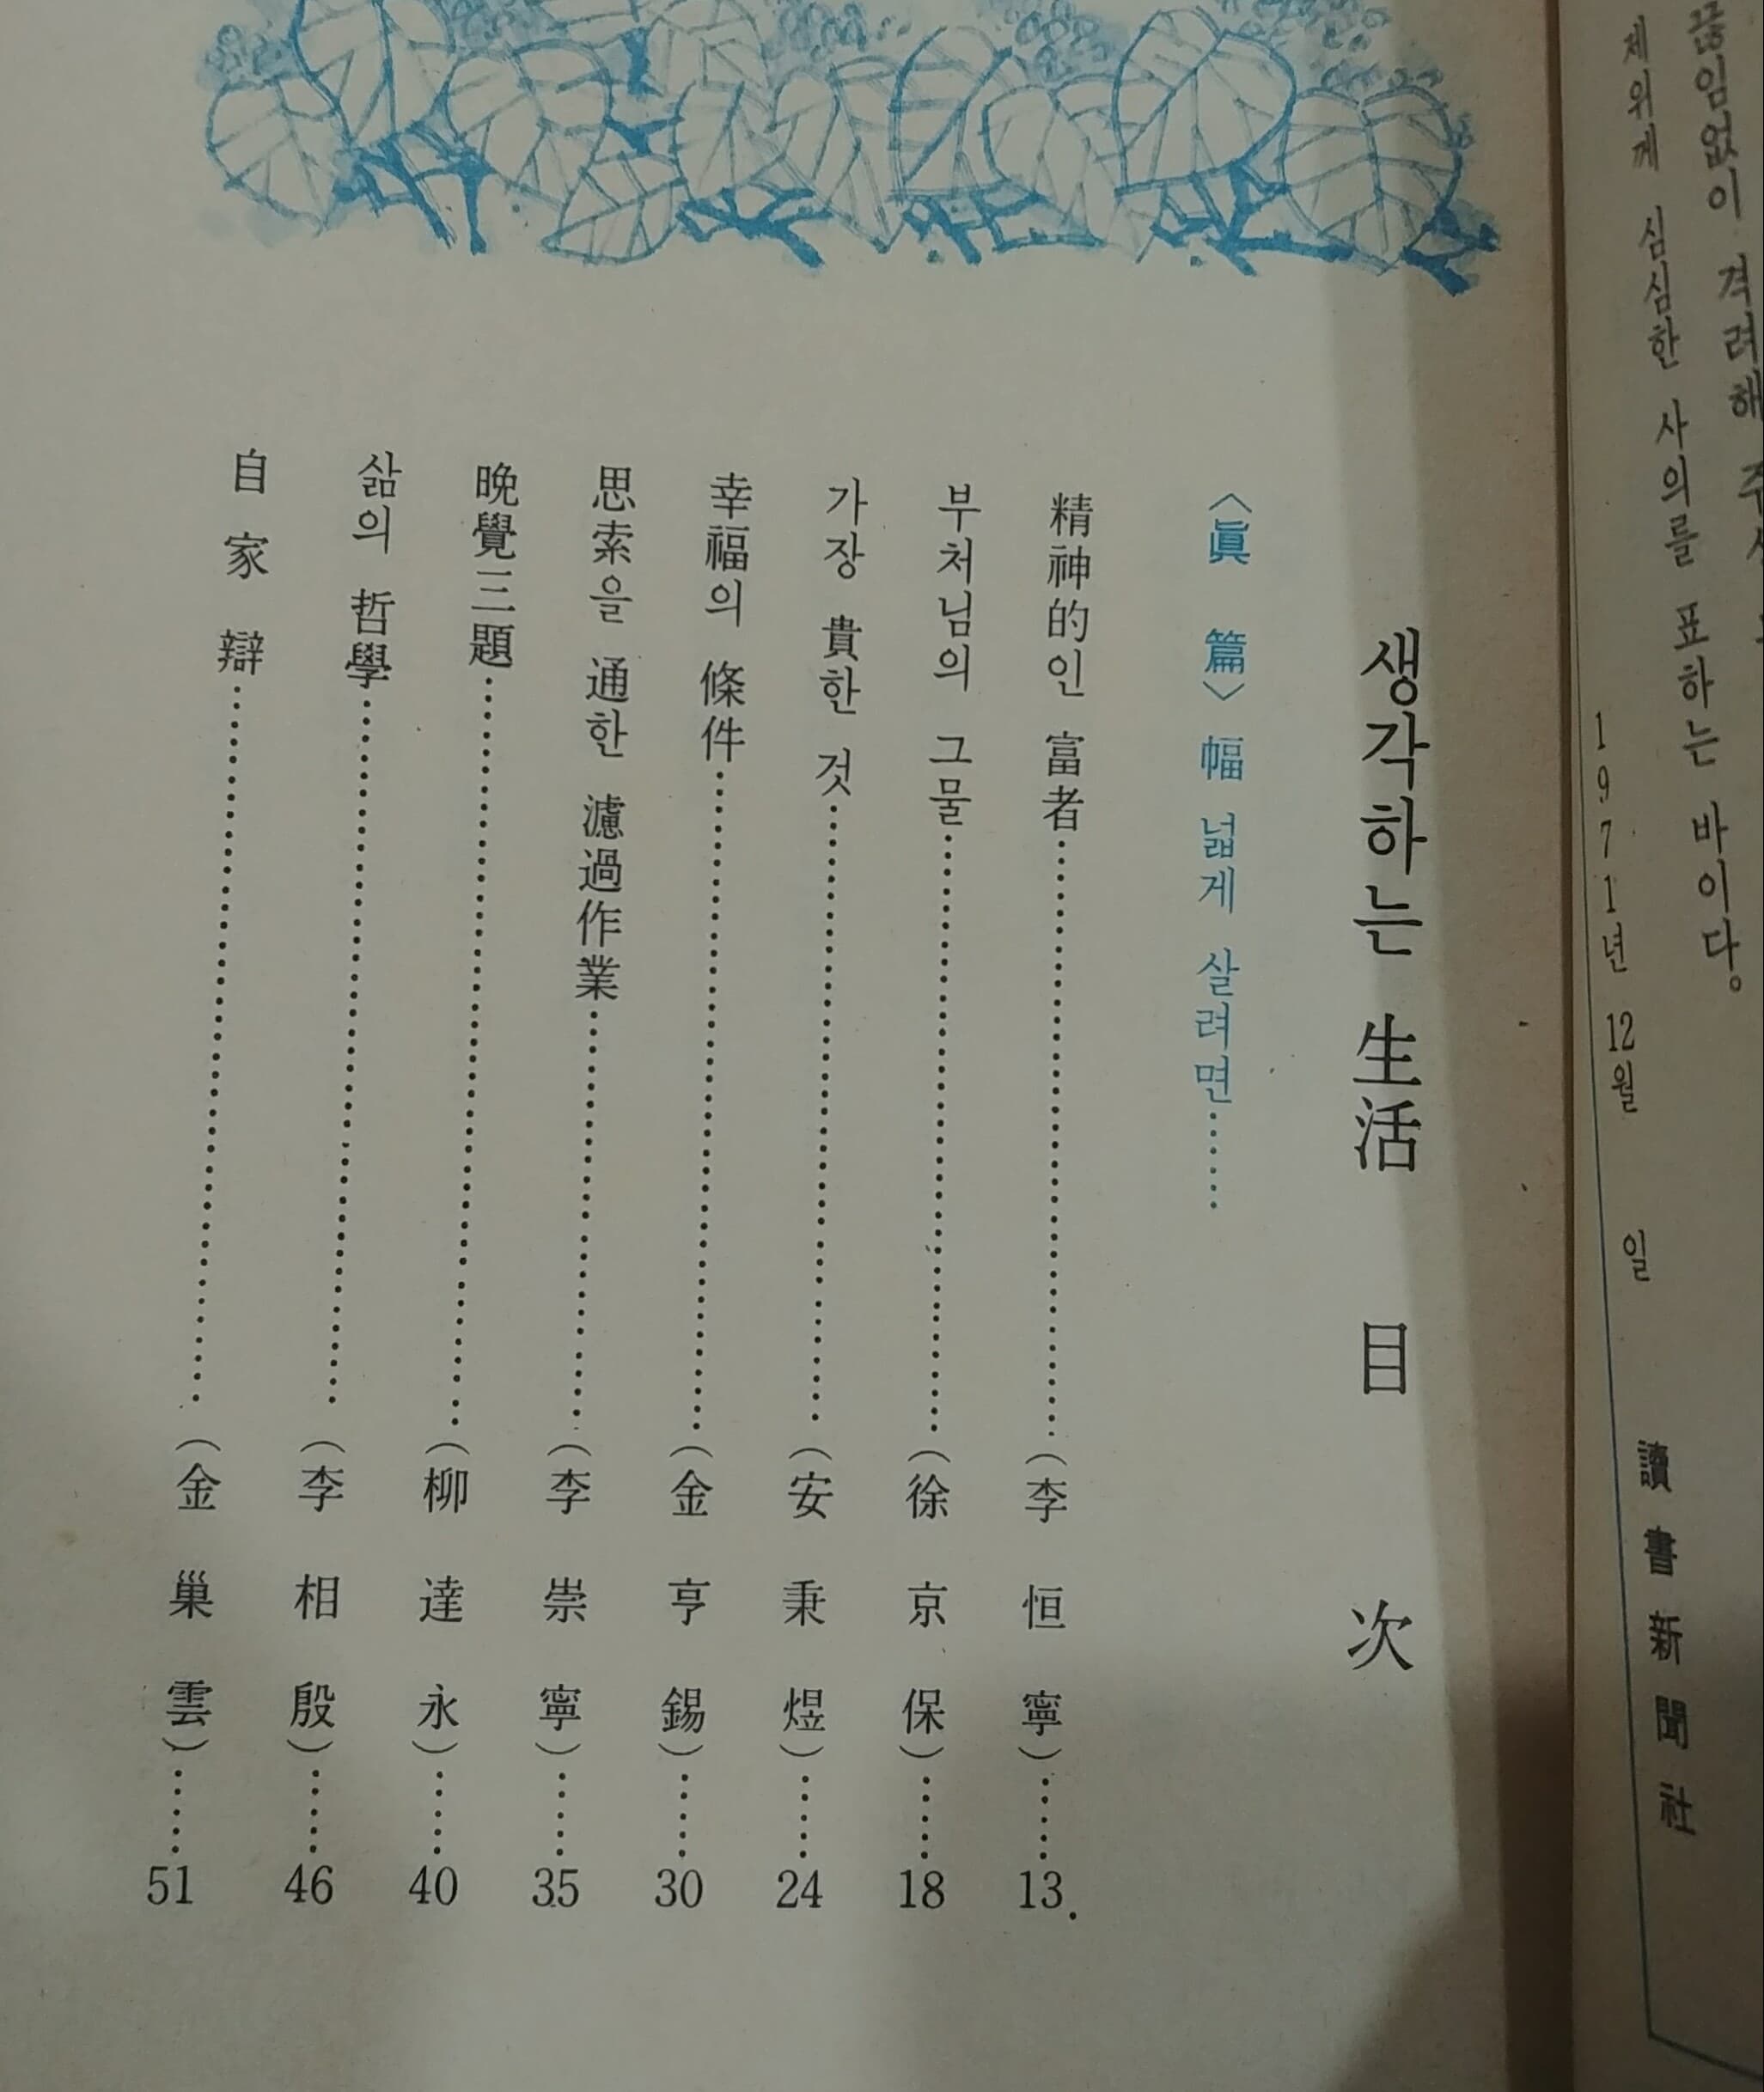 끊임없이 격려해 주
제위께 심심한 사의를 표하는 바이다。
1971년 12월 일
讀書新聞社
생각하는 生活 目次
〈眞 篇〉 幅 넓게 살려면……
精神的인 富者……(李恒寧)……13
부처님의 그물……(徐京保)……18
가장 貴한 것……(安秉煜)……24
幸福의 條件……(金亨錫)……30
思索을 通한 濾過作業……(李崇寧)……35
晩覺三題……(柳達永)……40
삶의 哲學……(李相殷)……46
自家辯……(金巢雲)……51